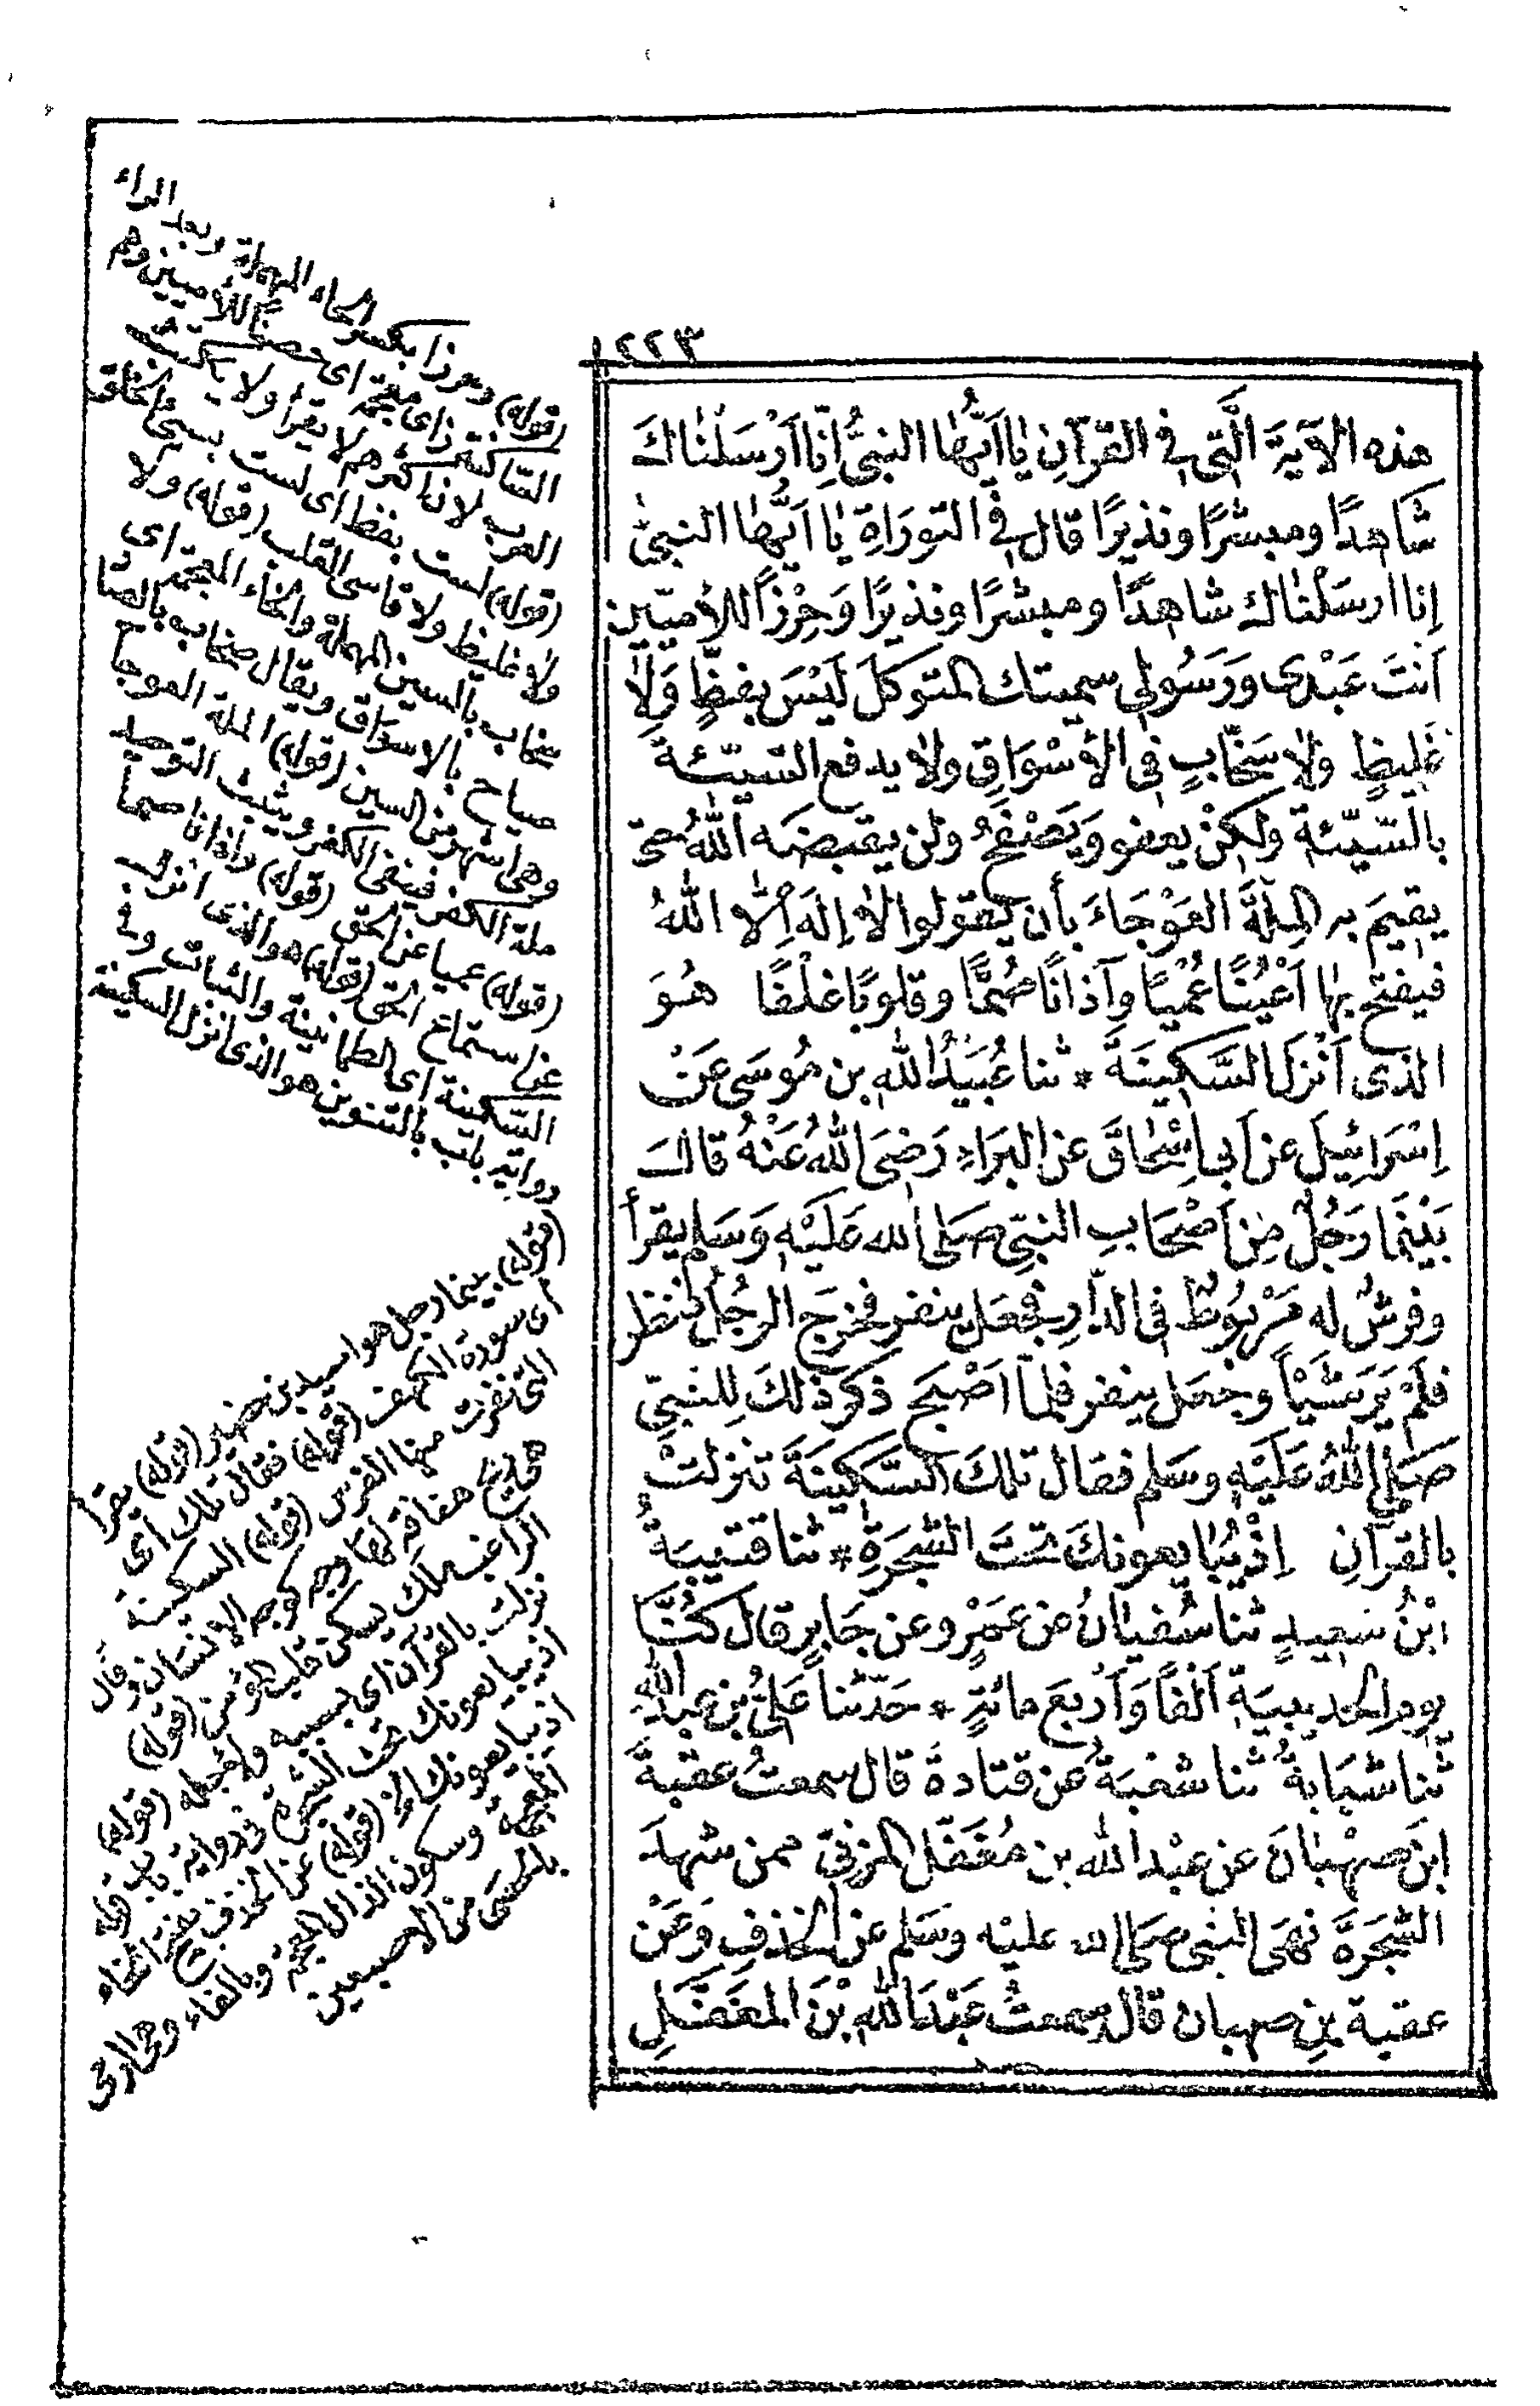 ٢٢٣
هذه الآيَةَ الَّتِى فى القرآنِ يَا أيُّهَا النبىُّ إنَّا أرْسَلْنَاكَ
شَاهِدًا ومبشرًا ونذيرًا قال فى التورَاةِ يَا أيُّهَا النبىُّ
إنا ارسَلْنَاك شاهِدًا ومبشرًا ونذيرًا وَحِرْزًا للأميّين
أنتَ عَبْدى وَرَسُولى سميتك المتوكل لَيْسَ بفظٍّ وَلَا
غَلِيظٍ ولا سَخَّابٍ فى الأسْوَاقِ ولا يدفع السَّيِّئةَ
بالسّيّئة ولكنْ يعفو وَيَصْفَحُ ولن يقبضَه اللهُ حتى
يقيمَ به المِلَّةَ العَوْجَاءَ بأن يَقولوا لا إلهَ إلّا اللهُ
فيفتح بها أعْيُنًا عُمْيًا وآذانًا صُمًّا وقلوبًا غلْفًا هُوَ
الذى أنْزَلَ السَّكِينَةَ * ثنا عُبَيْدُ اللهِ بن مُوسَى عَنْ
اِسْرَائِيلَ عن أبى إسْحَاقَ عن البَرَاءِ رَضِىَ اللهُ عَنْهُ قالَ
بَيْنَمَا رَجُلٌ مِنْ أصْحَابِ النبىِّ صَلى الله عَلَيْهِ وَسَلم يقرأ
وفرسٌ له مَرْبُوطٌ فى الدّارِ فجعَل ينفر فخرَج الرجُلُ فنظر
فلَمْ يَرَ شَيْأً وجَعَل ينفر فلمّا أصْبَح ذكرَ ذلكَ لِلنبىِّ
صَلى اللهُ عَلَيْهِ وسَلم فقال تلكَ السَّكِينَةَ تنزلتْ
بالقرآنِ إذْ يُبَايعونكَ تحْتَ الشَّجَرَةِ * ثنا قتيبَةُ
ابْنُ سَعِيدٍ ثنا سُفيَانُ عن عَمْرٍو عن جَابِرٍ قال كُنَّا
يوم الحديبيَة ألفًا وَأرْبعَ مائةٍ * حَدّثنا عَلىُّ بن عبد اللهِ
ثنا شَبَابةُ ثنا شعْبَةُ عن قتادةَ قال سمعتُ عقبةَ
ابنَ صهْبَانَ عن عبْد الله بن مُغَفّل المزنىّ ممن شهدَ
الشَّجَرَةَ نهَى النبى صَلى الله عليْه وَسَلم عن الخذفِ وَعَنْ
عقبة بن صهبان قال سمعتُ عَبْدَ اللهِ بْنَ المغَفَّلِ
(قوله) وحرزا بكسر الحاء المهملة وبعد الراء
الساكنة زاى معجمة اى حصنًا للأميين وهم
العرب لان اكثرهم لا يقرأ ولا يكتب
(قوله) لست بفظ اى لست بسىء الخلق
ولا غليظ ولا قاسى القلب (قوله) ولا
سخاب بالسين المهملة والخاء المعجمة اى
صياح بالاسواق ويقال صخاب بالصاد
وهى اشهر من السين (قوله) الملة العوجا
ملة الكفر فينفى الكفر ويثبت التوحيد
(قوله) عميا عن الحق (قوله) وآذانا صما
عن استماع الحق (قوله) هو الذى انزل
السكينة اى الطمانينة والثبات وفى
رواية باب بالتنوين هو الذى انزل السكينة
(قوله) بينما رجل هو اسيد بن حضير (قوله) يقرأ
اى سورة الكهف (قوله) فقال تلك اى
التى نفرت منها الفرس (قوله) السكينة
هى ريح هفافة لها وجه كوجه الانسان وقال
الراغب ملك يسكن قلب المؤمن (قوله)
تنزلت بالقرآن اى بسببه ولاجله (قوله)
اذ يبايعونك تحت الشجرة فى رواية باب قوله
اذ يبايعونك الخ (قوله) عن الخذف بفتح الخاء
المعجمة وسكون الذال المعجمة وبالفاء وهى الرمى
بالحصى من الاصبعين